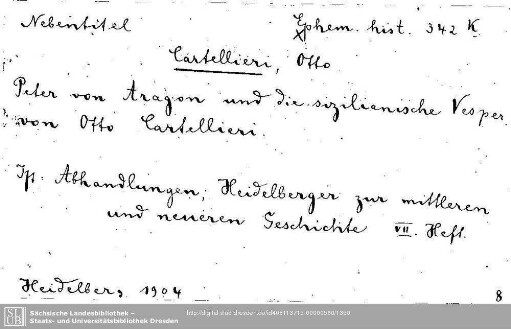 Nebentitel Ephem. hist. 342 K
Cartellieri, Otto
Peter von Aragon und die sizilianische Vesper
von Otto Cartellieri.
Abhandlungen, Heidelberger zur mittleren
und neueren Geschichte VII. Heft.
Heidelberg, 1904 8
Sächsische Landesbibliothek –
Staats- und Universitätsbibliothek Dresden